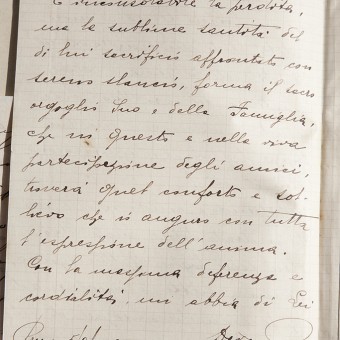 È inconsolabile la perdita,
ma la sublime santità del
di lui sacrificio affrontato con
sereno slancio, forma il sacro
orgoglio Suo e della Famiglia,
che in questo e nella viva
partecipazione degli amici,
troverà quel conforto e sol-
lievo che io auguro con tutta
l'espressione dell'anima.
Con la massima deferenza e
cordialità mi abbia di Lei